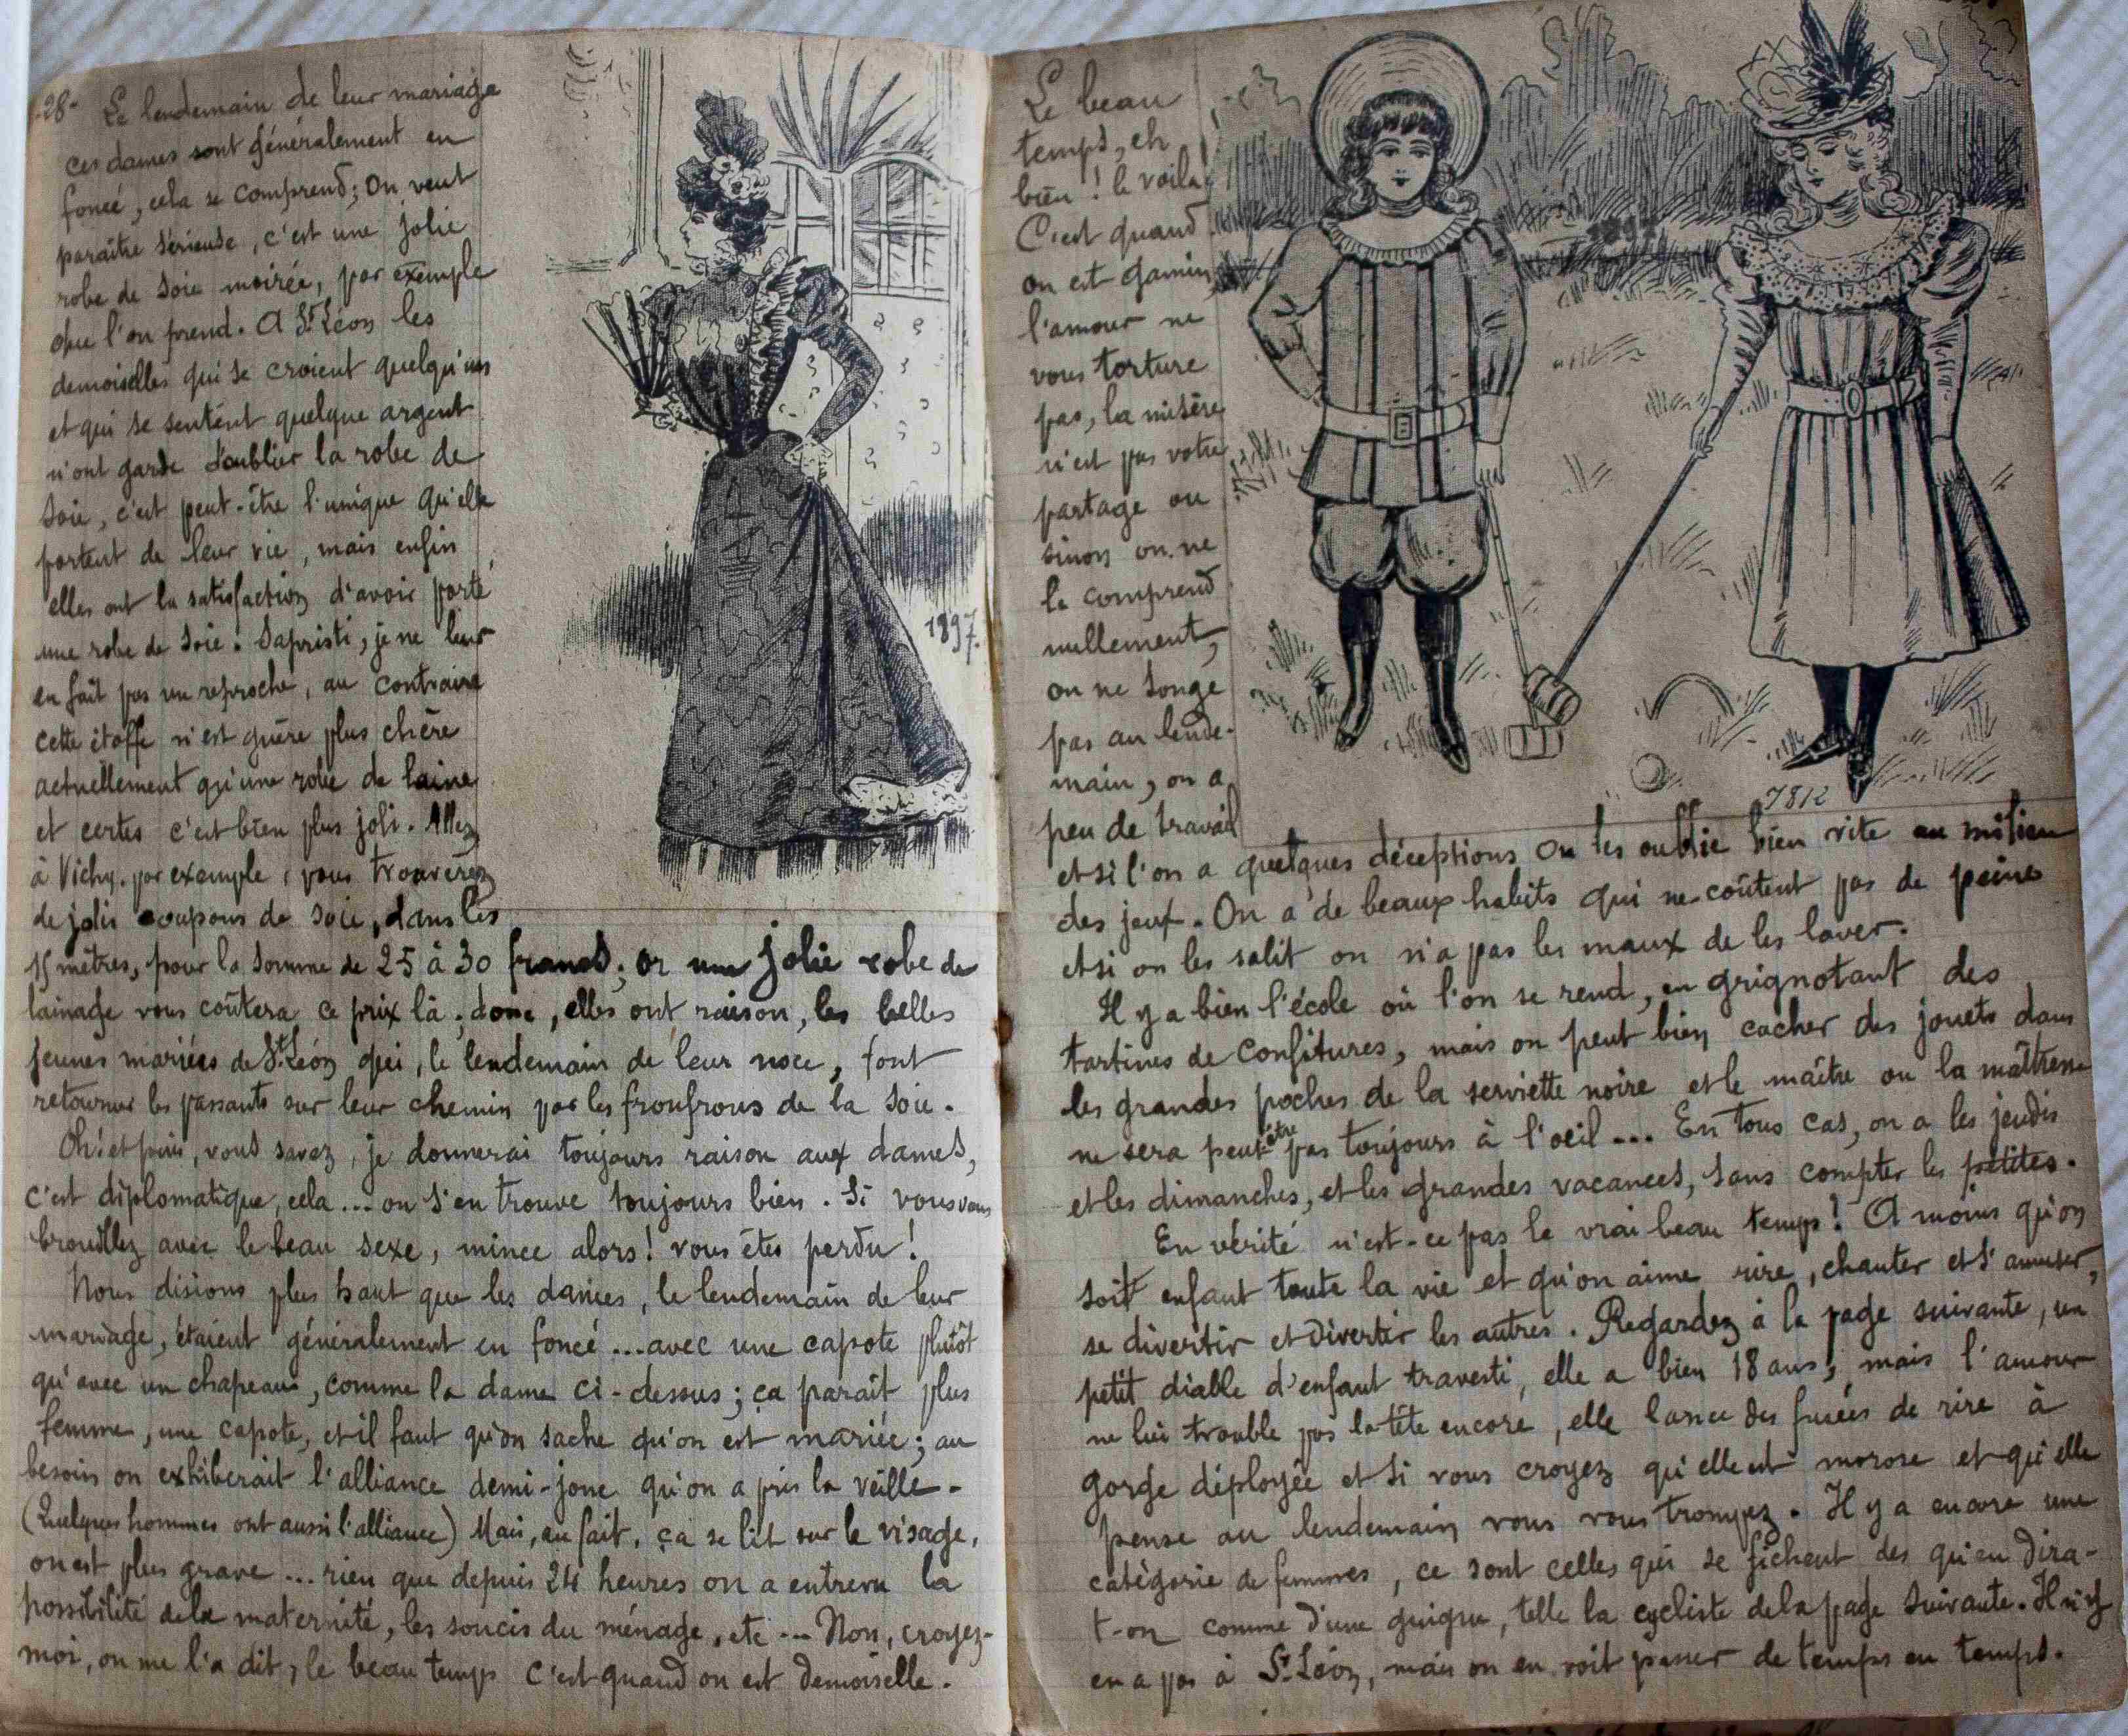 -28- Le lendemain de leur mariage
ces dames sont généralement en
foncé, cela se comprend; On veut
paraître sérieuse, c'est une jolie
robe de soie moirée, par exemple
que l'on prend. A St Léon les
demoiselles qui se croient quelqu'uns
et qui se sentent quelque argent
n'ont garde d'oublier la robe de
soie, c'est peut-être l'unique qu'elle
portent de leur vie, mais enfin
elles ont la satisfaction d'avoir porté
une robe de soie. Sapristi, je ne leur
en fait pas un reproche, au contraire
cette étoffe n'est guère plus chère
actuellement qu'une robe de laine
et certes c'est bien plus joli. Allez
à Vichy, par exemple, vous trouverez
de jolis coupons de soie, dans les
15 mètres, pour la somme de 25 à 30 francs; or une jolie robe de
lainage vous coûtera ce prix là; donc, elles ont raison, les belles
jeunes mariées de St Léon qui, le lendemain de leur noce, font
retourner les passants sur leur chemin par les froufrous de la soie.
Oh! et puis, vous savez, je donnerai toujours raison aux dames,
c'est diplomatique, cela... on s'en trouve toujours bien. Si vous vous
brouillez avec le beau sexe, mince alors! vous êtes perdu!
Nous disions plus haut que les dames, le lendemain de leur
mariage, étaient généralement en foncé... avec une capote plutôt
qu'avec un chapeau, comme la dame ci-dessus; ça paraît plus
femme, une capote, et il faut qu'on sache qu'on est mariée; au
besoin on exhiberait l'alliance demi-jonc qu'on a pris la veille.
(Quelques hommes ont aussi l'alliance) Mais, au fait, ça se lit sur le visage,
on est plus grave... rien que depuis 24 heures on a entrevu la
possibilité de la maternité, les soucis du ménage, etc... Non, croyez-
moi, on me l'a dit, le beau temps c'est quand on est demoiselle.
1897.
Le beau
temps, eh
bien! le voilà!
C'est quand
on est gamin,
l'amour ne
vous torture
pas, la misère
n'est pas votre
partage ou
sinon on ne
la comprend
nullement,
on ne songe
pas au lende-
main, on a
peu de travail
et si l'on a quelques déceptions on les oublie bien vite au milieu
des jeux. On a de beaux habits qui ne coûtent pas de peine
et si on les salit on n'a pas les maux de les laver.
Il y a bien l'école où l'on se rend, en grignotant des
tartines de confitures, mais on peut bien cacher des jouets dans
les grandes poches de la serviette noire et le maître ou la maîtresse
ne sera peut-être pas toujours à l'oeil... En tous cas, on a les jeudis
et les dimanches, et les grandes vacances, sans compter les petites.
En vérité n'est-ce pas le vrai beau temps! A moins qu'on
soit enfant toute la vie et qu'on aime rire, chanter et s'amuser,
se divertir et divertir les autres. Regardez à la page suivante, un
petit diable d'enfant travesti, elle a bien 18 ans, mais l'amour
ne lui trouble pas la tête encore, elle lance des fusées de rire à
gorge déployée et si vous croyez qu'elle est morose et qu'elle
pense au lendemain vous vous trompez. Il y a encore une
catégorie de femmes, ce sont celles qui se fichent des qu'en dira-
t-on comme d'une guigne, telle la cycliste de la page suivante. Il n'y
en a pas à St Léon, mais on en voit passer de temps en temps.
1897
7812